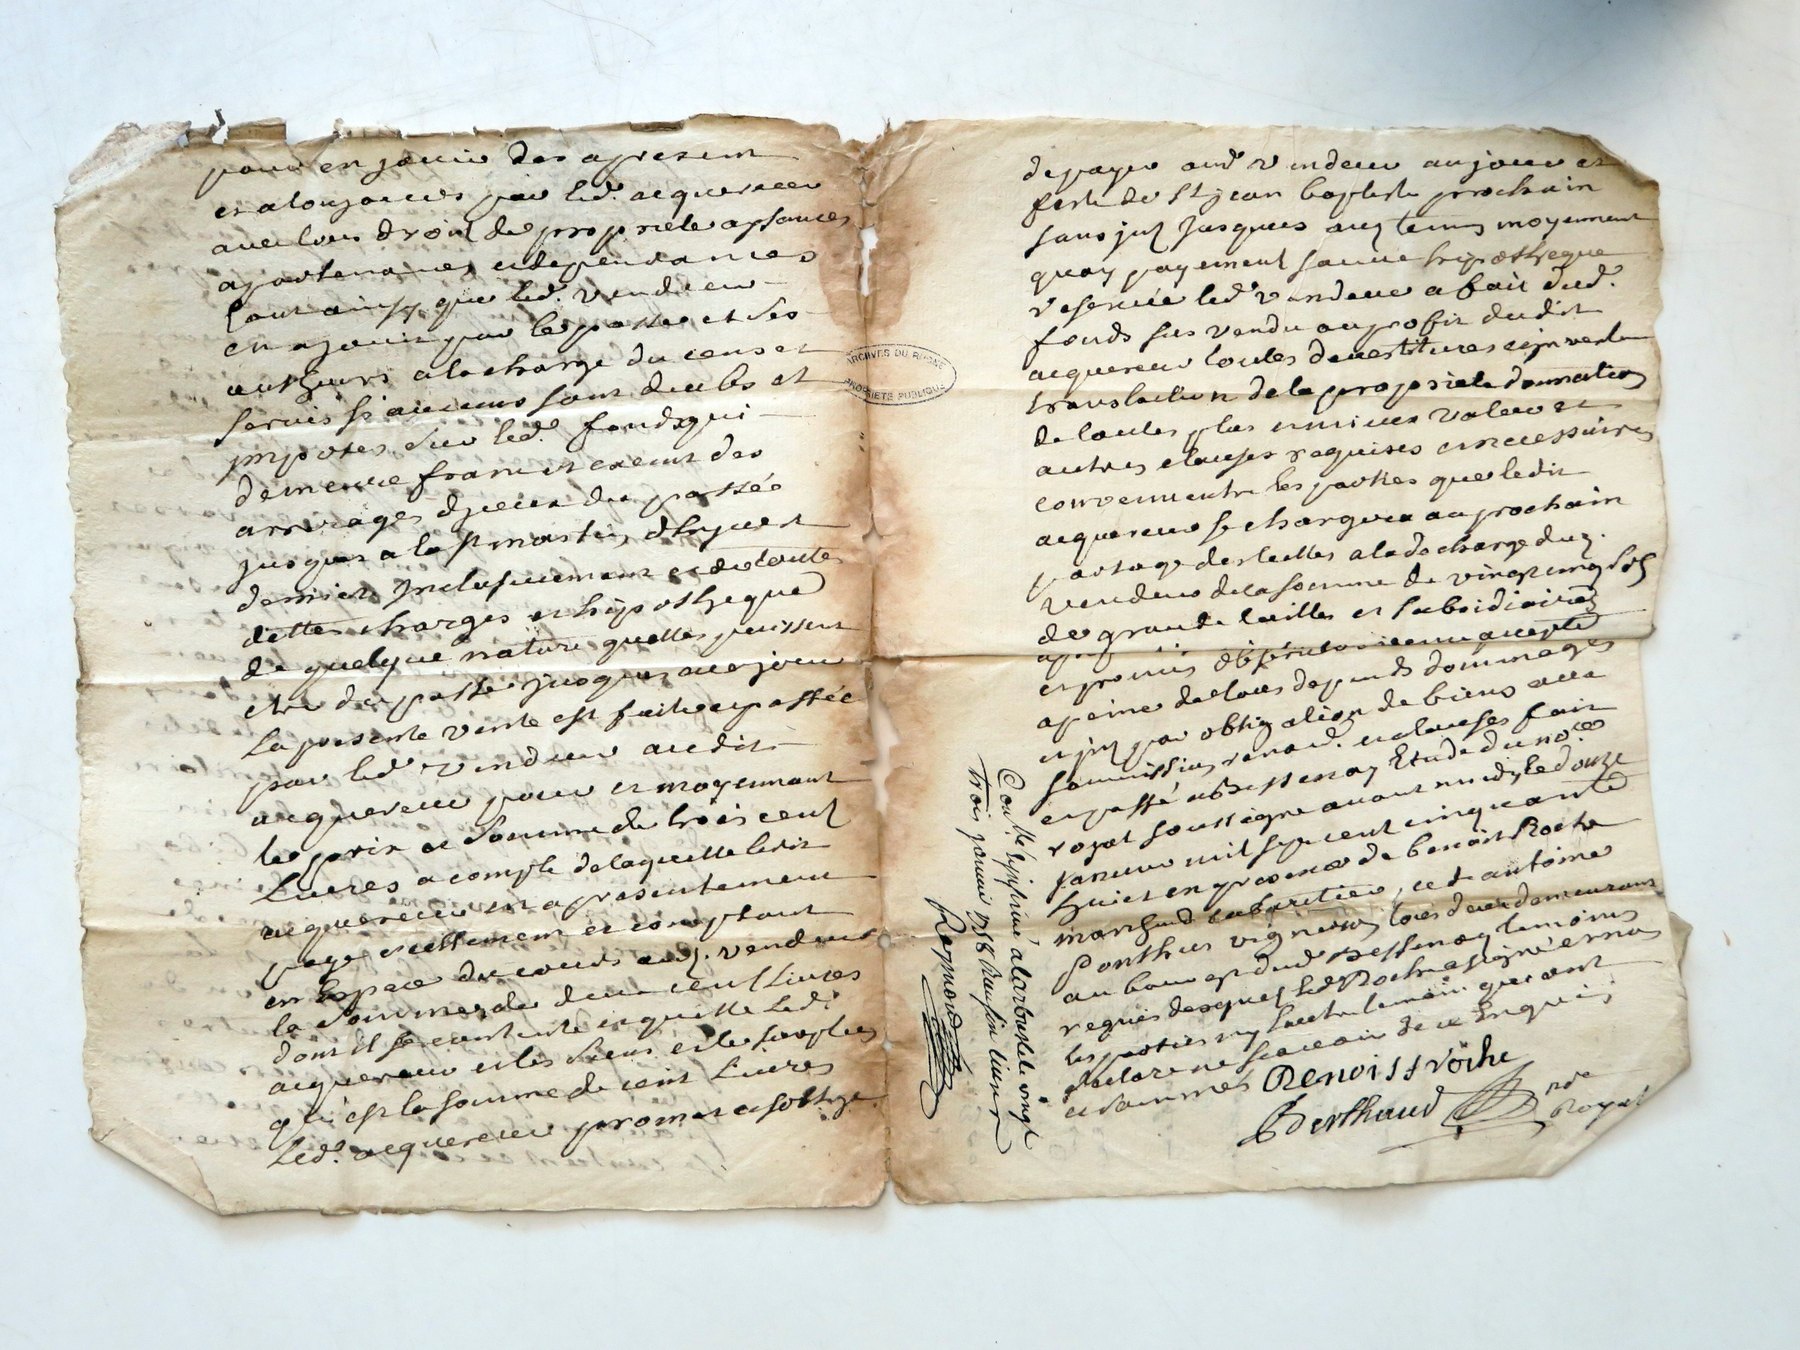 pour en jouir des apresent
et a toujours par led. acquereur
avec tous droits de propriete aysances
apartenances et dependances
tout ainsy que led. vendeur
en a jouit par le passé et ses
autheurs a la charge du cens et
servis si aucuns sont deubs et
imposes sur led. fonds qui
demeure franc et exempt des
arrerages d'yceux du passée
jusques a la St martin d'hyvert
dernier Inclusivement et de toutes
dettes charges et hipotheque
de quelque nature quelles puissent
etre du passé jusques a ce jour
La presente vente est faitte et passée
par led. vendeur audit
acquereur pour et moyennant
le prix et somme de trois cent
Livres a compte de laquelle ledit
acquereur en a presentement
payé reellement et comptant
en Espece du cours aud. vendeur
la somme de deux cent Livres
dont il se contente en quitte Ledt
acquereur et les siens et le surplus
qui est la somme de cent Livres
Led. acquereur promet et s'oblige
de payer aud. vendeur au jour et
feste de St jean baptiste prochain
sans jusques aud. terme moyennent
quoy payement sauve hipotheque
reservée led. vendeur a fait dud.
fonds sus vendu au profit dudit
acquereur toutes devestitures
translation de la propriete donnation
de toutes plus et mieux valeur et
autres clauses requises et necessaires
convenu entre les parties que ledit
acquereur se chargera au prochain
partage des tailles a la decharge dud.
vendeur de la somme de vingt cinq sols
de grande tailles et subsidiaires
et promis observer accepté
a peine de tous depends dommages
et par obligation de biens avec
soumissions renond. et clauses fait
et passé a Bessenay Etude du nore
royal soussigné avant midy le douze
janvier mil sept cent cinquante
huict en presence de benoist Roche
marchand cabaretier, et de antoine
Ponthus vigneron tous deux demeurant
au bourg dud. Bessenay temoins
requis desquels led. Roche a signé et non
les parties ny l'autre temoin qui ont
declaré ne scavoir de ce Enquis
et sommés BENOIST rôche
Berthaud nore Royal
Coné Insinué a larbresle le vingt
trois janvier 1758
Reymond
ARCHIVES DU RHONE
PROPRIETE PUBLIQUE